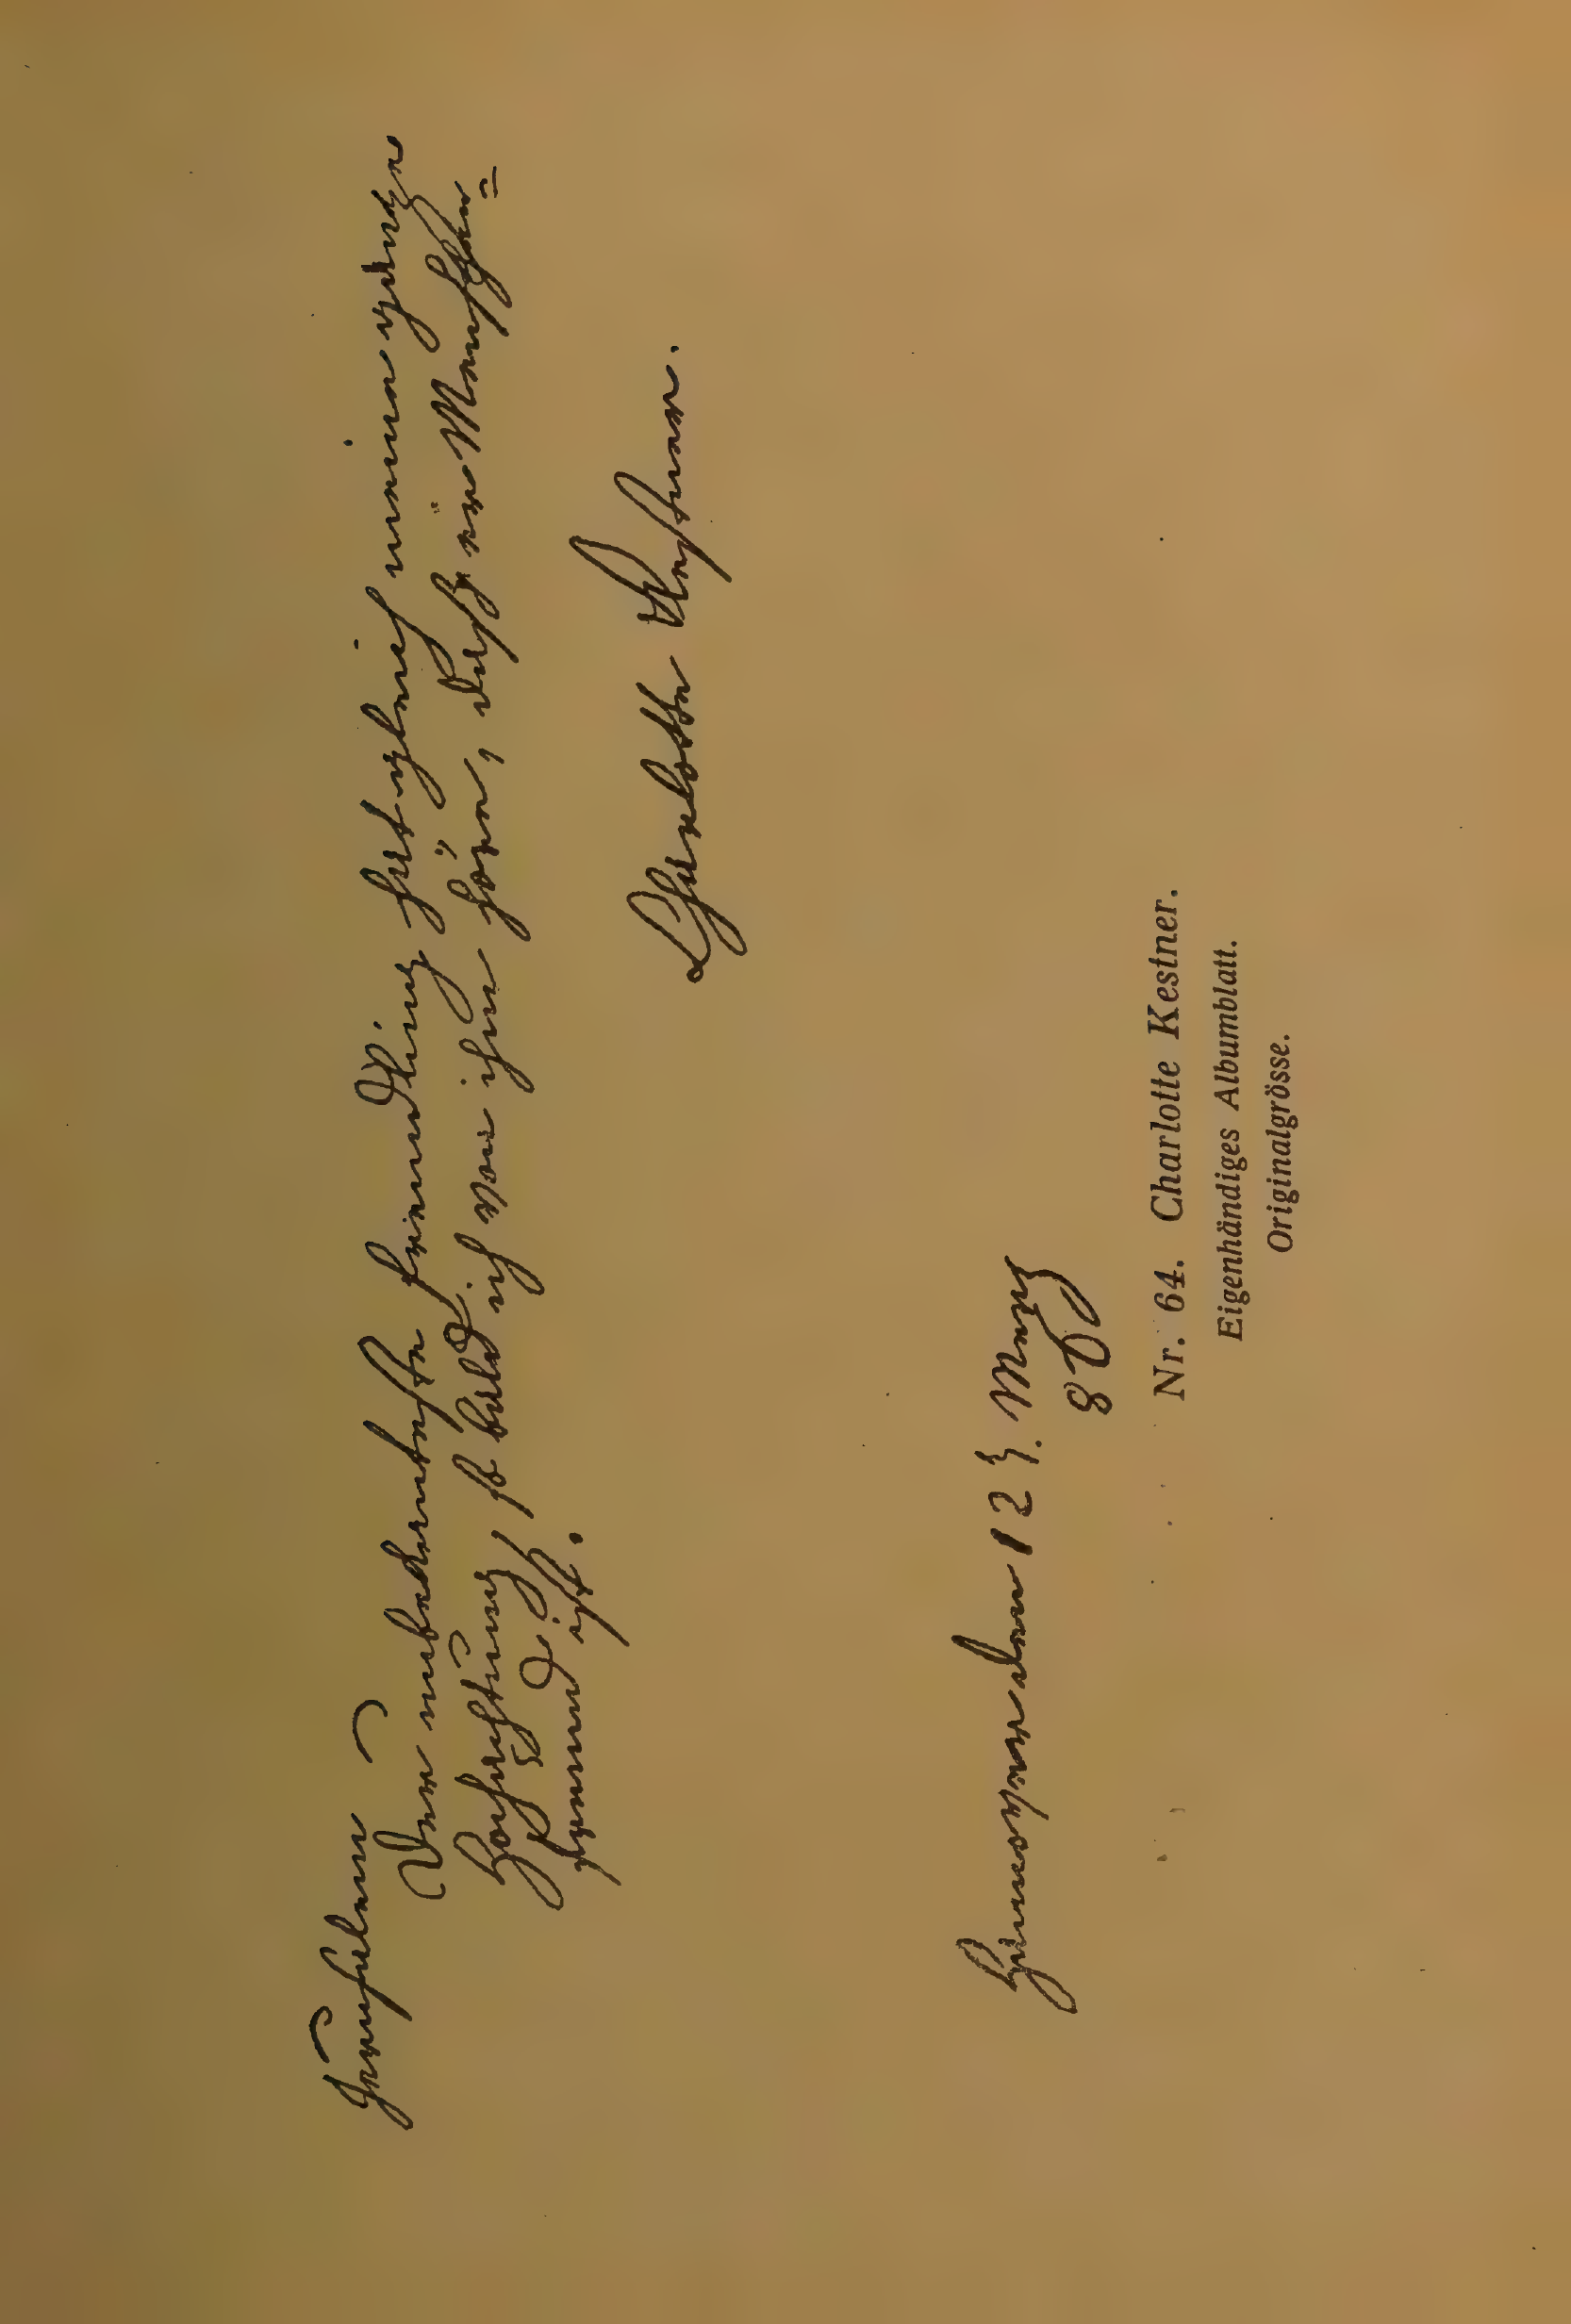 Der unbekannte fremdling hat gleich meine ganze
Hochachtung, so bald ich von ihm höre, daß ein Menschen=
freund ist.
Charlotte Kestner.
Hannover den 12 t. März
803
Nr. 64. Charlotte Kestner.
Eigenhändiges Albumblatt.
Originalgrösse.